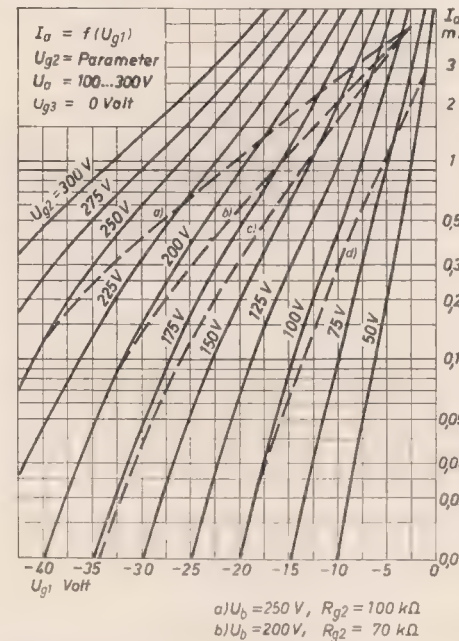 I_a = f(U_g1)
U_g2 = Parameter
U_a = 100...300V
U_g3 = 0 Volt
I_a
m
3
2
1
0,5
0,3
0,2
0,1
0,05
U_g2 = 300 V
275 V
250 V
225 V
200 V
175 V
150 V
125 V
100 V
75 V
50 V
a)
b)
c)
d)
-40 -35 -30 -25 -20 -15 -10 -5 0
U_g1 Volt
a) U_b = 250 V, R_g2 = 100 kΩ
b) U_b = 200 V, R_g2 = 70 kΩ